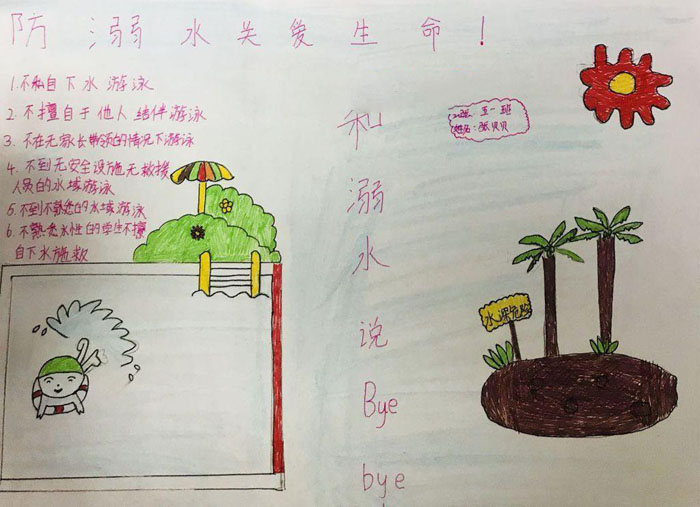 防溺水关爱生命!
1.不私自下水游泳
2.不擅自于他人结伴游泳
3.不在无家长带领的情况下游泳
4.不到无安全设施无救援
人员的水域游泳
5.不到不熟悉的水域游泳
6.不熟悉水性的学生不擅
自下水施救
和
溺
水
说
Bye
bye
班级:五一班
姓名:张贝贝
水深危险